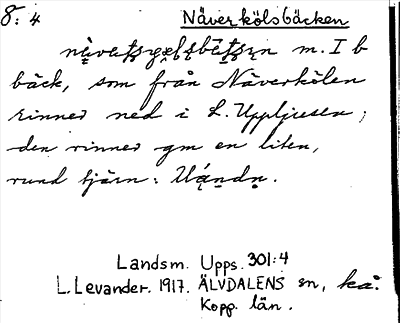 8:4 Näverkölsbäcken
m. I b
bäck, som från Näverkölen
rinner ned i L. Uppljusen;
den rinner gm en liten,
rund tjärn:
Landsm. Upps. 301:4
L. Levander. 1917. ÄLVDALENS sn,
Kopp. län.